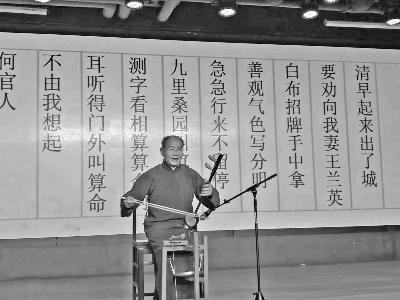 清早起来出了城
要劝向我妻王兰英
白布招牌手中拿
善观气色写分明
急急行来不留停
九里桑园
测字看相算算命
耳听得门外叫算命
不由我想起
何官人